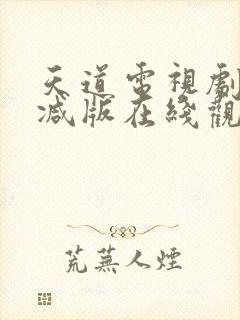 天道電視劇
減版在綫觀
荒蕪人煙